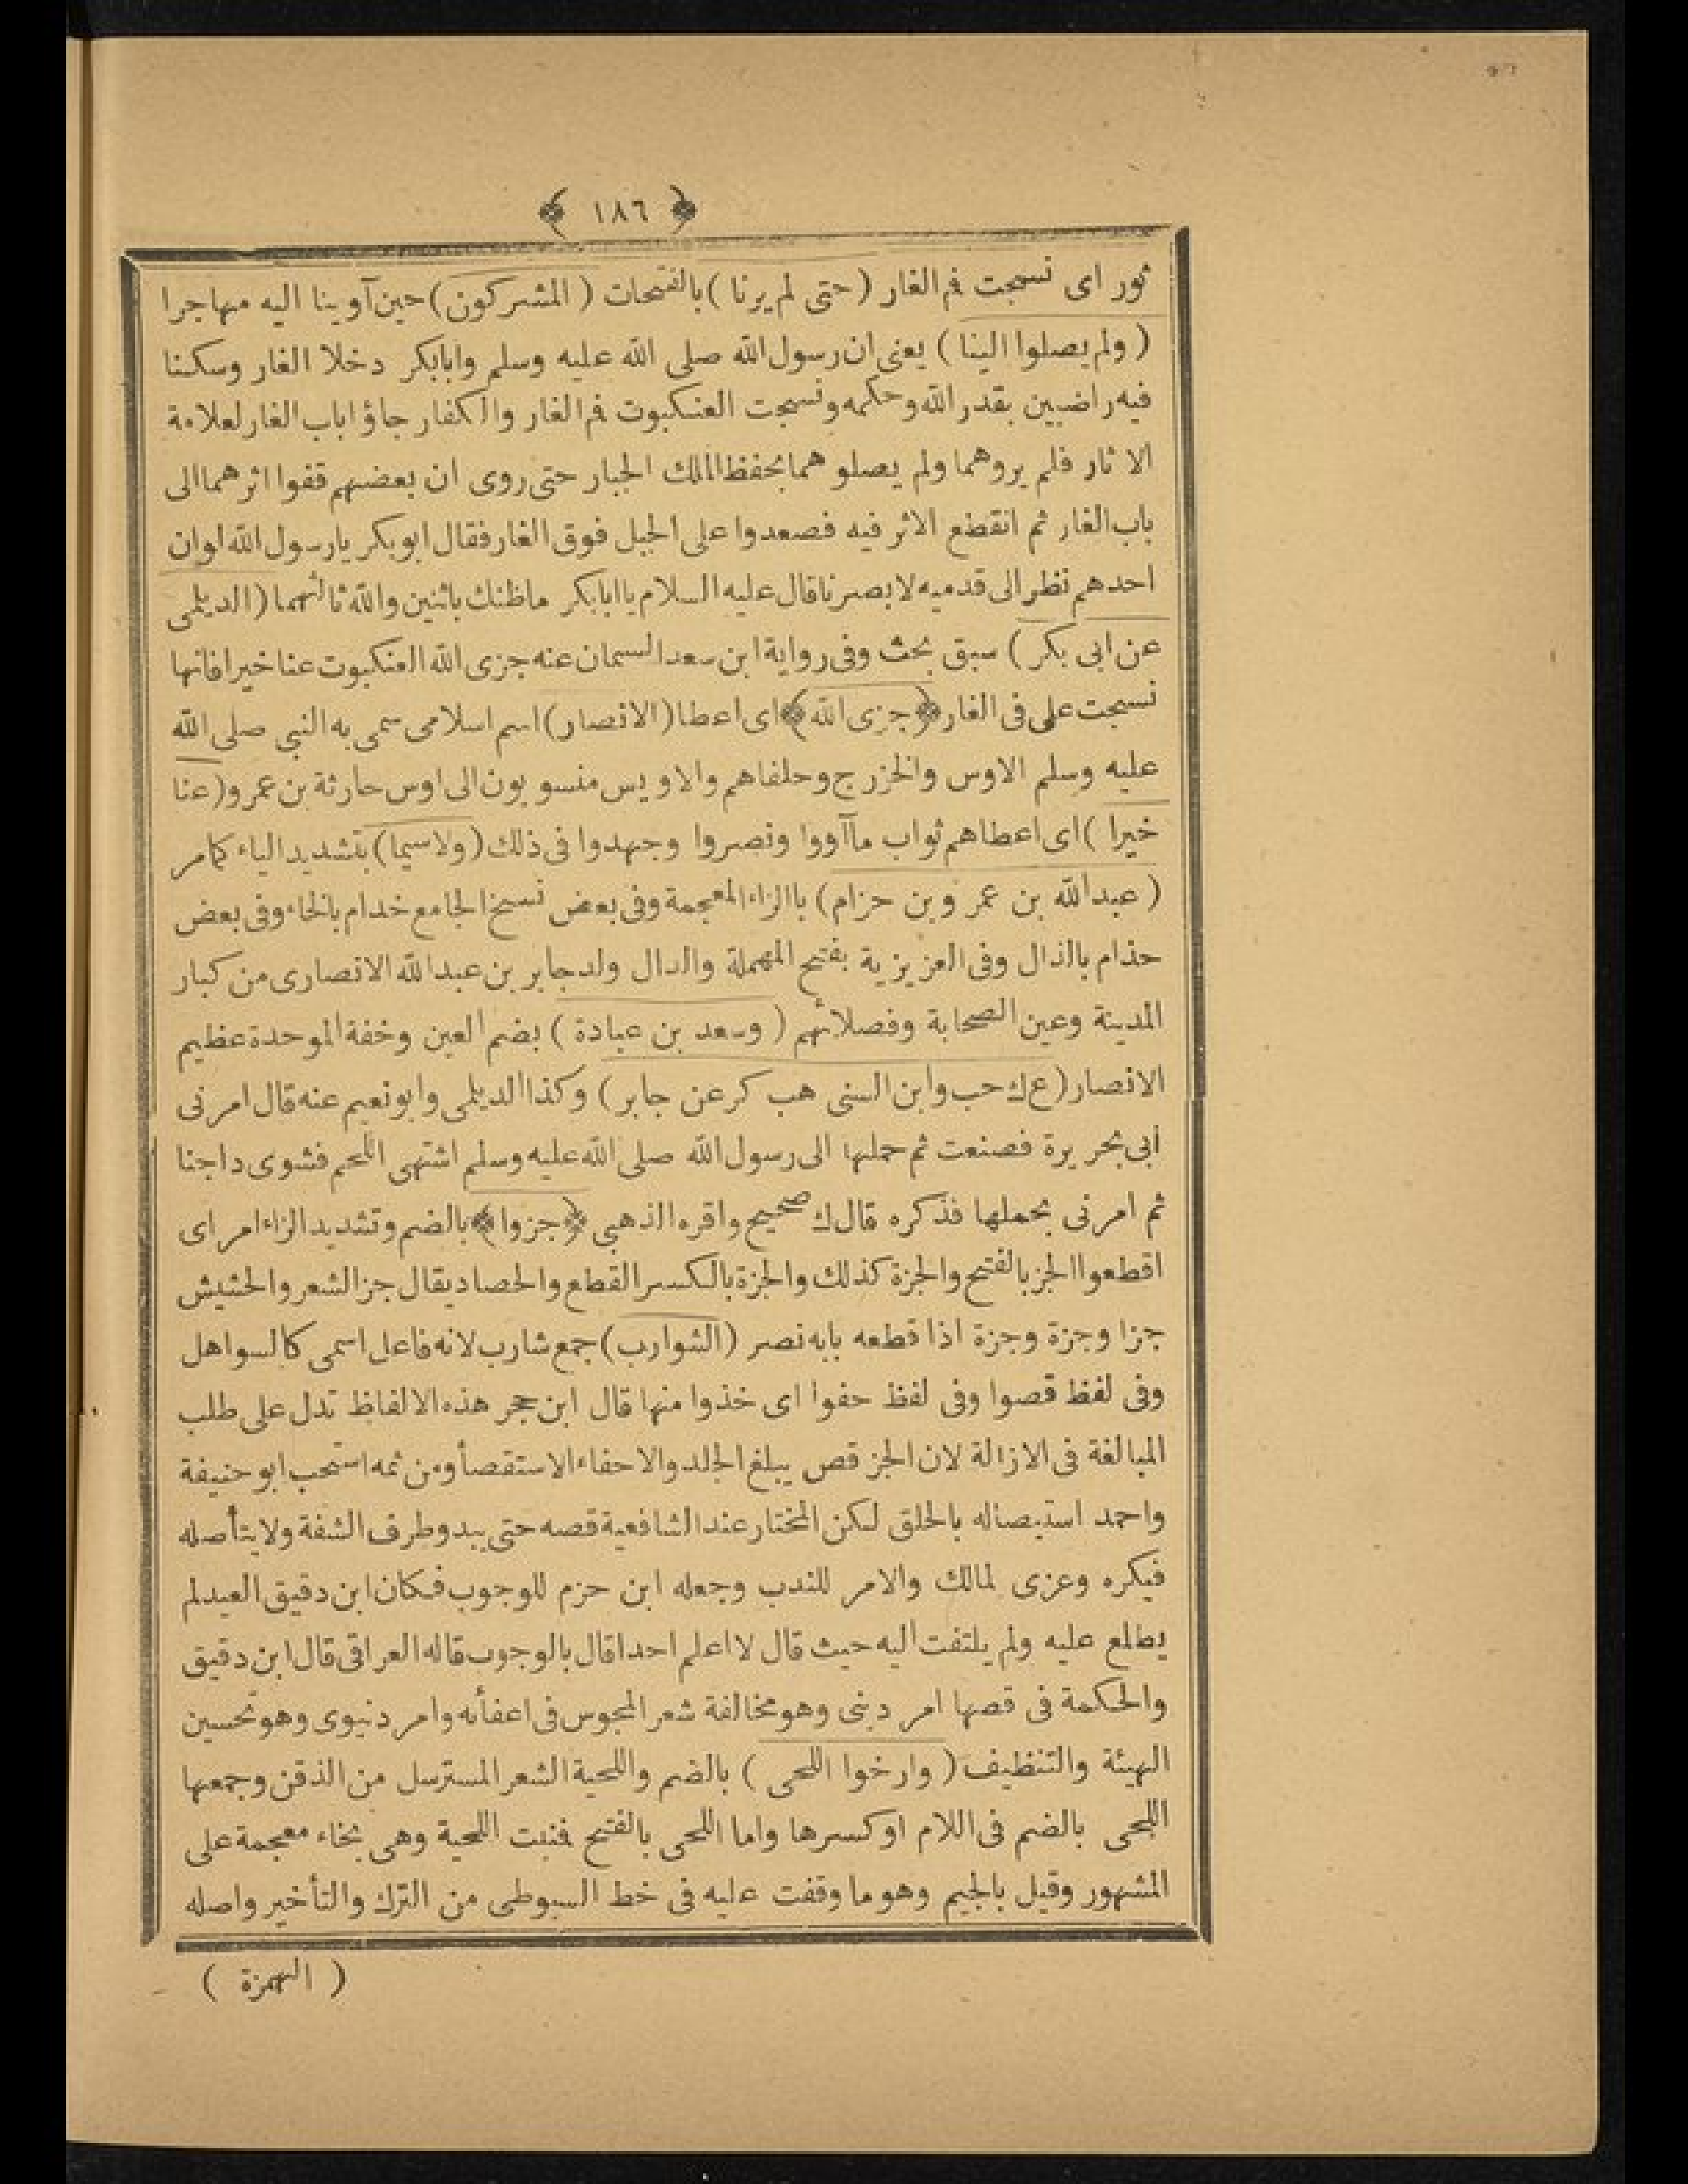 ﴿ ١٨٦ ﴾
ثور اى نسجت فم الغار (حتى لم يرنا) بالفتحات (المشركون) حين آوينا اليه مهاجرا
(ولم يصلوا الينا) يعنى ان رسول الله صلى الله عليه وسلم وابابكر دخلا الغار وسكنا
فيه راضيين بقدر الله وحكمه ونسجت العنكبوت فم الغار والكفار جاؤا باب الغار لعلامة
الاثار فلم يروهما ولم يصلوهما بحفظ الملك الجبار حتى روى ان بعضهم قفوا اثرهما الى
باب الغار ثم انقطع الاثر فيه فصعدوا على الجبل فوق الغار فقال ابوبكر يارسول الله لوان
احدهم نظر الى قدميه لابصرنا قال عليه السلام يا ابابكر ماظنك باثنين والله ثالثهما (الديلمى
عن ابى بكر) سبق بحث وفى رواية ابن سعد السمان عنه جزى الله العنكبوت عنا خيرا فانها
نسجت على فى الغار ﴿جزى الله﴾ اى اعطا (الانصار) اسم اسلامى سمى به النبي صلى الله
عليه وسلم الاوس والخزرج وحلفاهم والاويس منسوبون الى اوس حارثة بن عمرو (عنا
خيرا) اى اعطاهم ثواب ماآووا ونصروا وجهدوا فى ذلك (ولاسيما) بتشديد الياء كمامر
(عبدالله بن عمر وبن حزام) باالزاء المعجمة وفى بعض نسخ الجامع خدام بالخاء وفى بعض
حذام بالذال وفى العزيزية بفتح المهملة والدال ولد جابر بن عبدالله الانصارى من كبار
المدينة وعين الصحابة وفصلائهم (وسعد بن عبادة) بضم العين وخفة الموحدة عظيم
الانصار (ع ك حب وابن السنى هب كر عن جابر) وكذا الديلمى وابونعيم عنه قال امرنى
ابى بحريرة فصنعت ثم حملتها الى رسول الله صلى الله عليه وسلم اشتهى اللحم فشوى داجنا
ثم امرنى بحملها فذكره قال ك صحيح واقره الذهبى ﴿جزوا﴾ بالضم وتشديد الزاء امر اى
اقطعوا الجز بالفتح والجزة كذلك والجزة بالكسر القطع والحصاد يقال جز الشعر والحشيش
جزا وجزة وجزة اذا قطعه بابه نصر (الشوارب) جمع شارب لانه فاعل اسمى كالسواهل
وفى لفظ قصوا وفى لفظ حفوا اى خذوا منها قال ابن حجر هذه الالفاظ تدل على طلب
المبالغة فى الازالة لان الجز قص يبلغ الجلد والاحفاء الاستقصأ ومن ثمه استحب ابوحنيفة
واحمد استيصاله بالحلق لكن المختار عند الشافعية قصه حتى يبدو طرف الشفة ولا يتأصله
فيكره وعزى لمالك والامر للندب وجعله ابن حزم للوجوب فكان ابن دقيق العيد لم
يطلع عليه ولم يلتفت اليه حيث قال لااعلم احدا قال بالوجوب قاله العراقى قال ابن دقيق
والحكمة فى قصها امر دينى وهو مخالفة شعر المجوس فى اعفأنه وامر دنيوى وهو تحسين
الهيئة والتنظيف (وارخوا اللحى) بالضم واللحية الشعر المسترسل من الذقن وجمعها
اللحى بالضم فى اللام اوكسرها واما اللحى بالفتح فنبت اللحية وهى بخاء معجمة على
المشهور وقيل بالجيم وهو ما وقفت عليه فى خط السيوطى من الترك والتأخير واصله
(الهمزة)